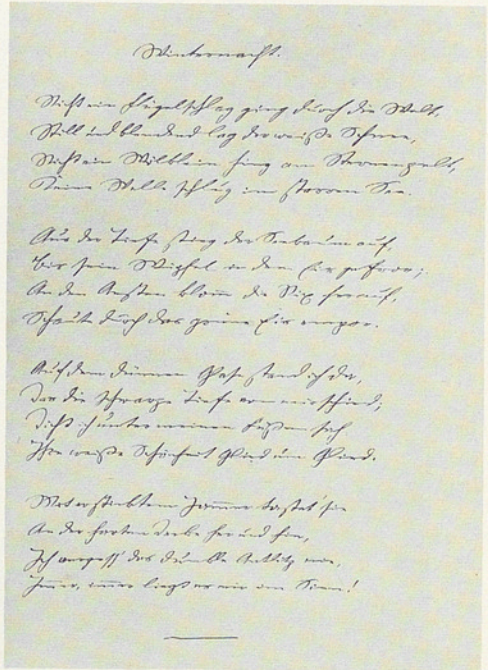 Winternacht.
Nicht ein Flügelschlag ging durch die Welt,
Still und blendend lag der weiße Schnee,
Nicht ein Wölklein hing am Sternenzelt,
Keine Welle schlug im starren See.
Aus der Tiefe stieg der Seebaum auf,
Bis sein Wipfel in dem Eis gefror;
An den Aesten klomm die Nix herauf,
Schaute durch das grüne Eis empor.
Auf dem dünnen Glase stand ich da,
Das die schwarze Tiefe von mir schied;
Dicht ich unter meinen Füßen sah
Ihre weiße Schönheit Glied um Glied.
Mit ersticktem Jammer tastet' sie
An der harten Decke her und hin,
Ich vergess' das dunkle Antlitz nie,
Immer, immer liegt es mir im Sinn!